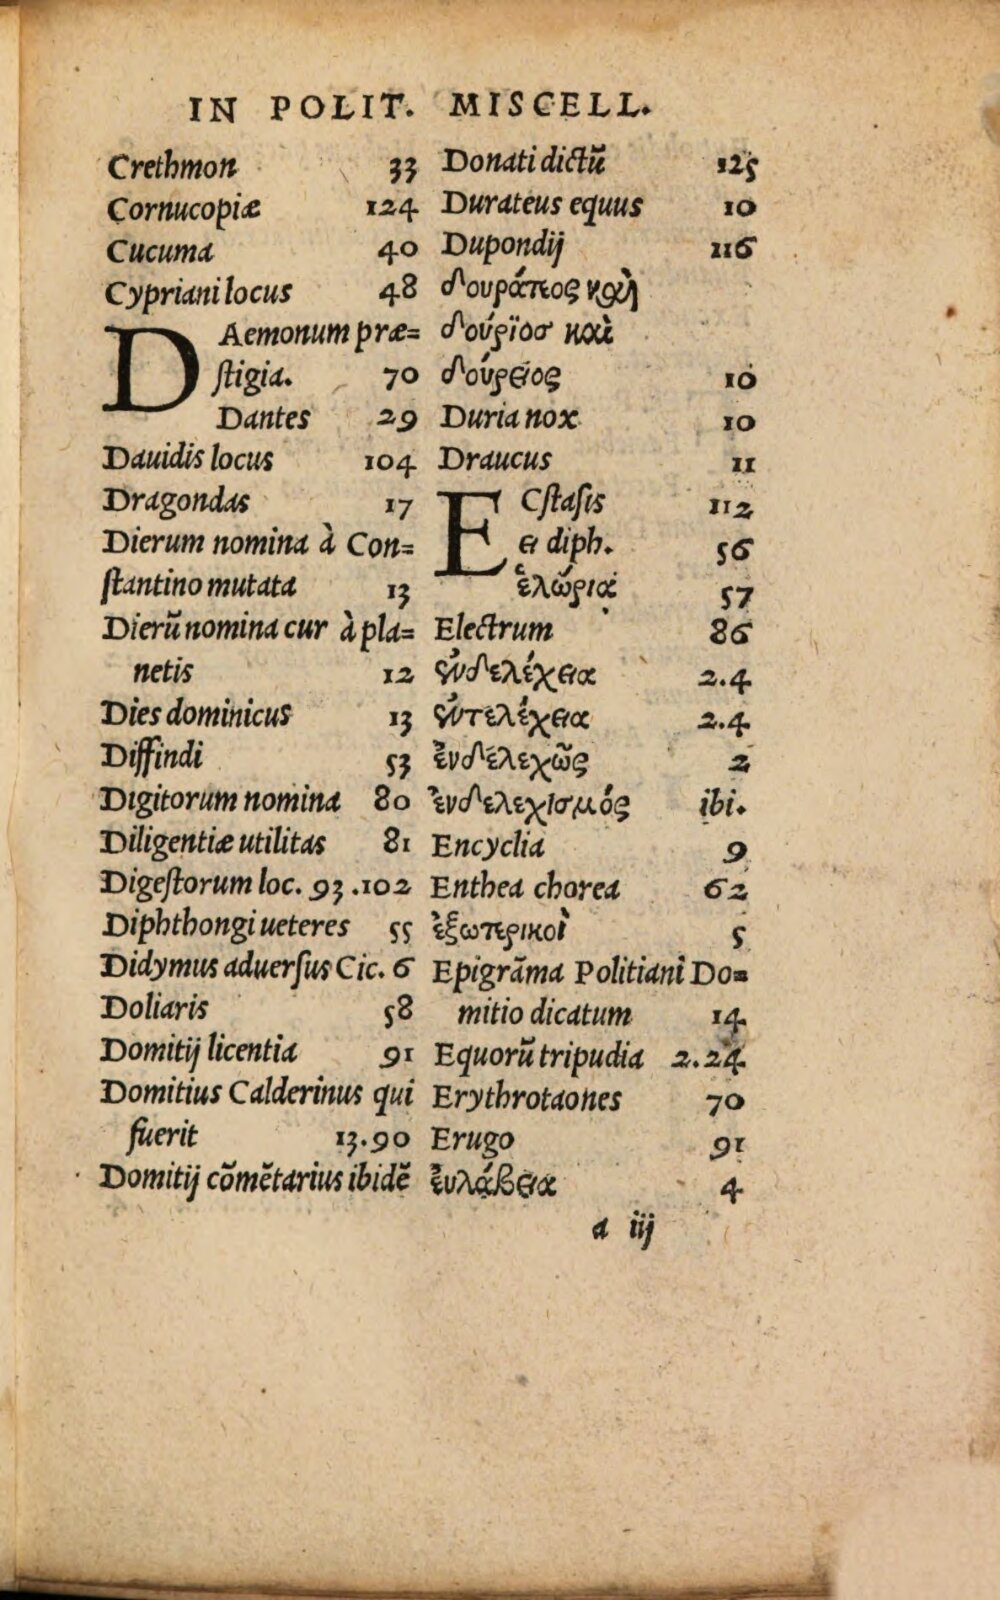 IN POLIT. MISCELL.
Crethmon 33
Cornucopiæ 124
Cucuma 40
Cypriani locus 48
DAemonum præ=
ſtigia. 70
Dantes 29
Dauidis locus 104
Dragondas 17
Dierum nomina à Con=
ſtantino mutata 13
Dierũ nomina cur à pla=
netis 12
Dies dominicus 13
Diffindi 53
Digitorum nomina 80
Diligentiæ utilitas 81
Digeſtorum loc. 93.102
Diphthongi ueteres 55
Didymus aduerſus Cic. 6
Doliaris 58
Domitij licentia 91
Domitius Calderinus qui
fuerit 13.90
Domitij cõmẽtarius ibidẽ
Donati dictũ 125
Durateus equus 10
Dupondij 116
δουράτεος καὶ
δούριοσ καὶ
δούρειος 10
Duria nox 10
Draucus 11
ECſtaſis 112
ei diph. 56
ἑλώρια 57
Electrum 86
ἐνδελέχεια 2.4
ἐντελέχεια 2.4
ἐνδελεχῶς 2
ἐνδελεχισμός ibi.
Encyclia 9
Enthea chorea 62
ἐξωτερικοὶ 5
Epigrãma Politiani Do=
mitio dicatum 14
Equorũ tripudia 2.24
Erythrotaones 70
Erugo 91
ἐυλάβεια 4
a iij